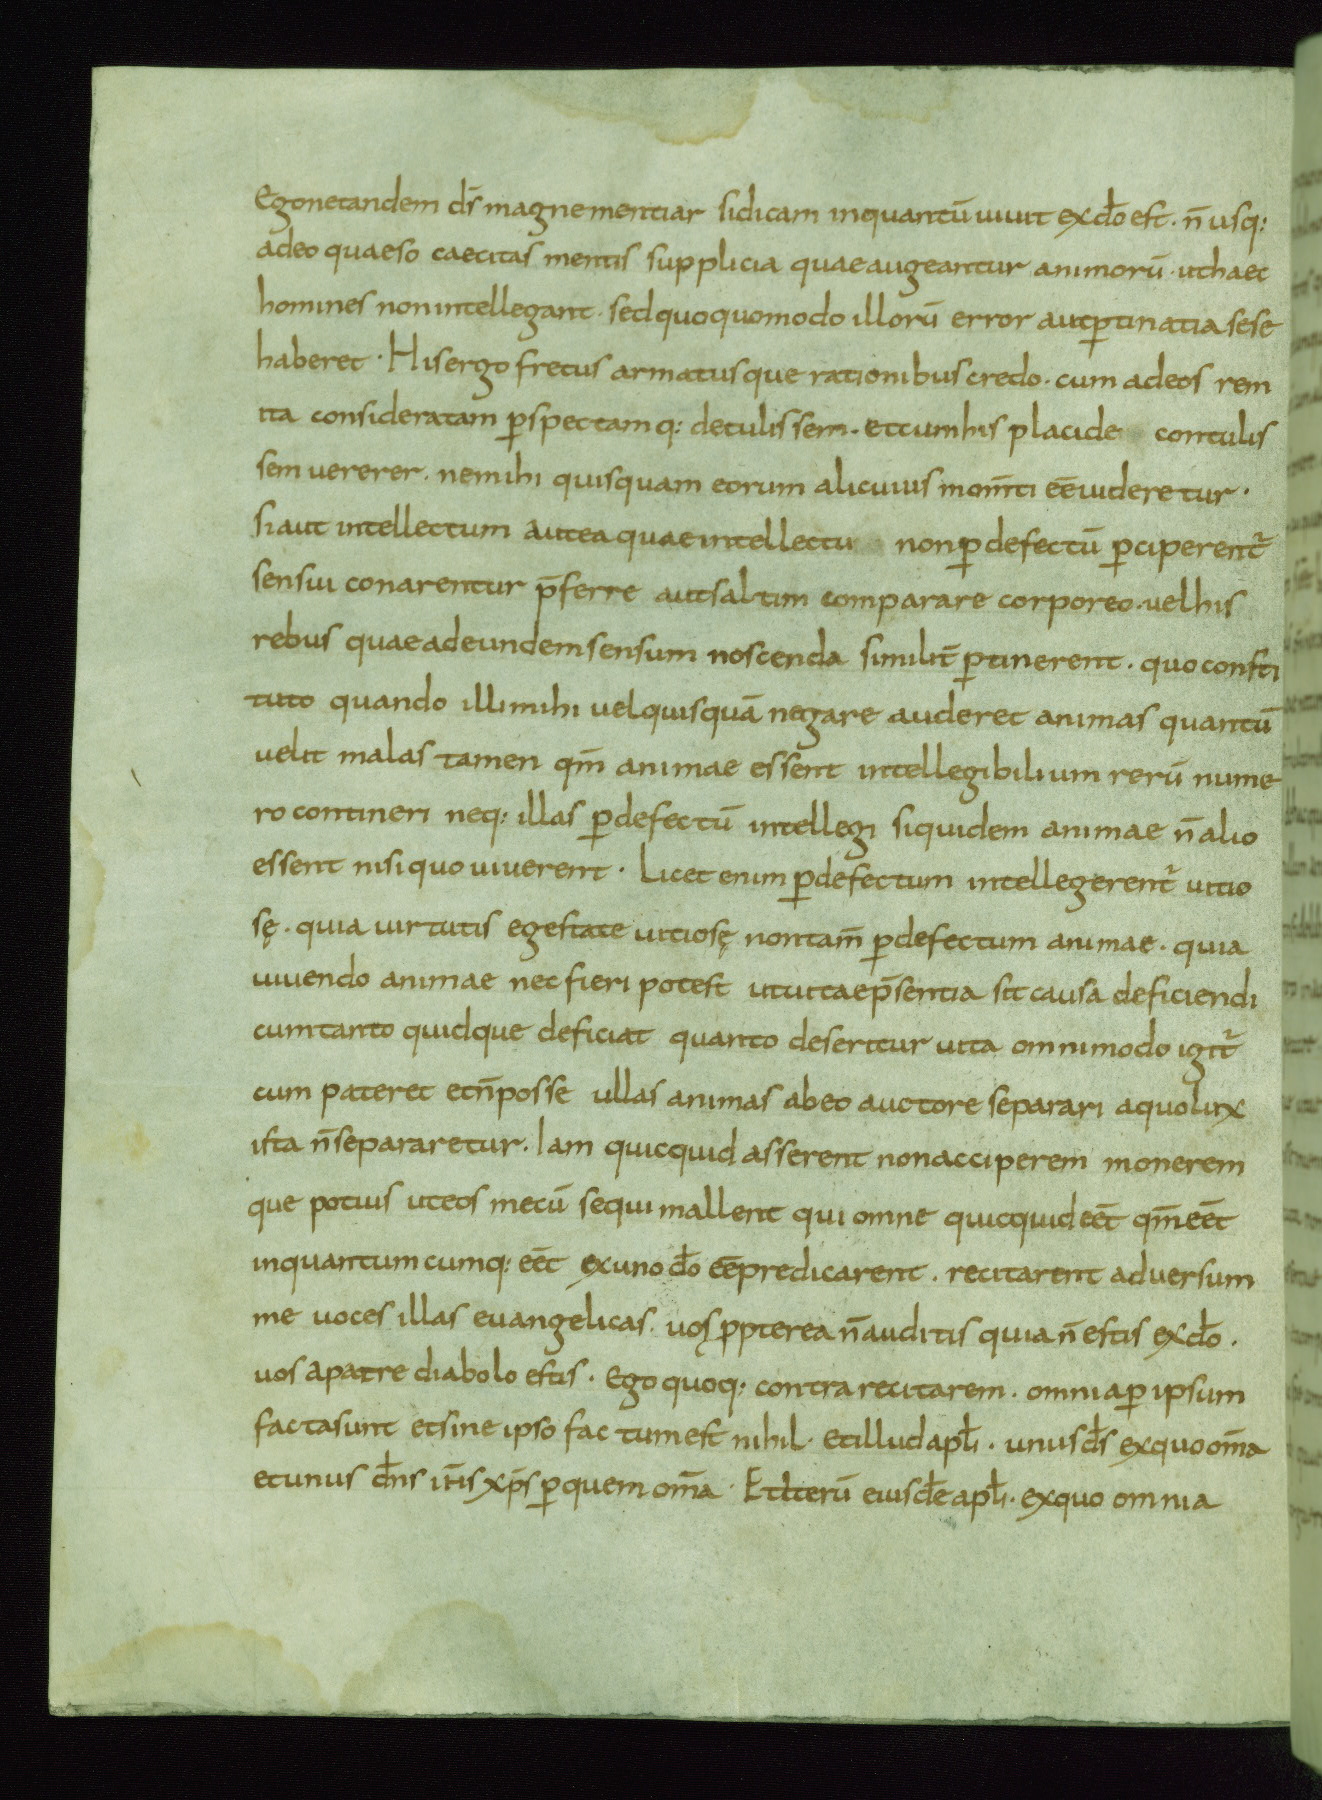 Egonetandem dr̄ magnementiar sidicam inquantū uiuit exdo̅ est. n̄ usq:
adeo quaeso caecitas mentis supplicia quaeaugeantur animorū. uthaec
homines nonintellegant. sedquoquomodo illorū error autp̱tinatia sese
haberet. Hisergo fretus armatusque rationibus credo. cum adeos rem
ita consideratam p̱spectamq: detulissem. etcumhis placide contulis
sem uererer. nemihi quisquam eorum alicuius mom̄ti ee̅uideretur.
siaut intellectum autea quaeintellectu nonp̱defectū p̱ciperent̄
sensui conarentur p̄ferre autsaltim comparare corporeo. uelhis
rebus quaeadeundemsensum noscenda similit̄ p̱tinerent. quoconsti
tuto quando illimihi uelquisquā negare auderet animas quantū
uelit malas tamen qm̄ animae essent intellegibilium rerū nume
ro contineri neq: illas p̱defectū intellegi siquidem animae n̄alio
essent nisiquo uiuerent. Licet enim p̱defectum intellegerent̄ uitio
sę. quia uirtutis egestate uitiosę nontam̄ p̱defectum animae. quia
uiuendo animae nec fieri potest utuitaep̄sentia sit causa deficiendi
cumtanto quidque deficiat quanto deseritur uita omnimodo igit̄
cum pateret etn̄posse ullas animas abeo auctore separari aquolux
ista n̄separaretur. Iam quicquid asserent nonacciperem monerem
que potius uteos mecū sequi mallent qui omne quicquideet̄ qm̄eet̄
inquantumcumq: eet̄ exuno do̅ ee̅predicarent. recitarent aduersum
me uoces illas euangelicas. uos p̱pterea n̄auditis quia n̄ estis exdo̅.
uos apatre diabolo estis. Ego quoq: contra recitarem. omniap̱ ipsum
factasunt etsine ipso factumest nihil. etilludapl̄i. unusds̄ exquoom̄a
etunus dn̄s ih̄s xp̄s p̱quem om̄a. Etiterū eiusde̅ apl̄i. exquo omnia